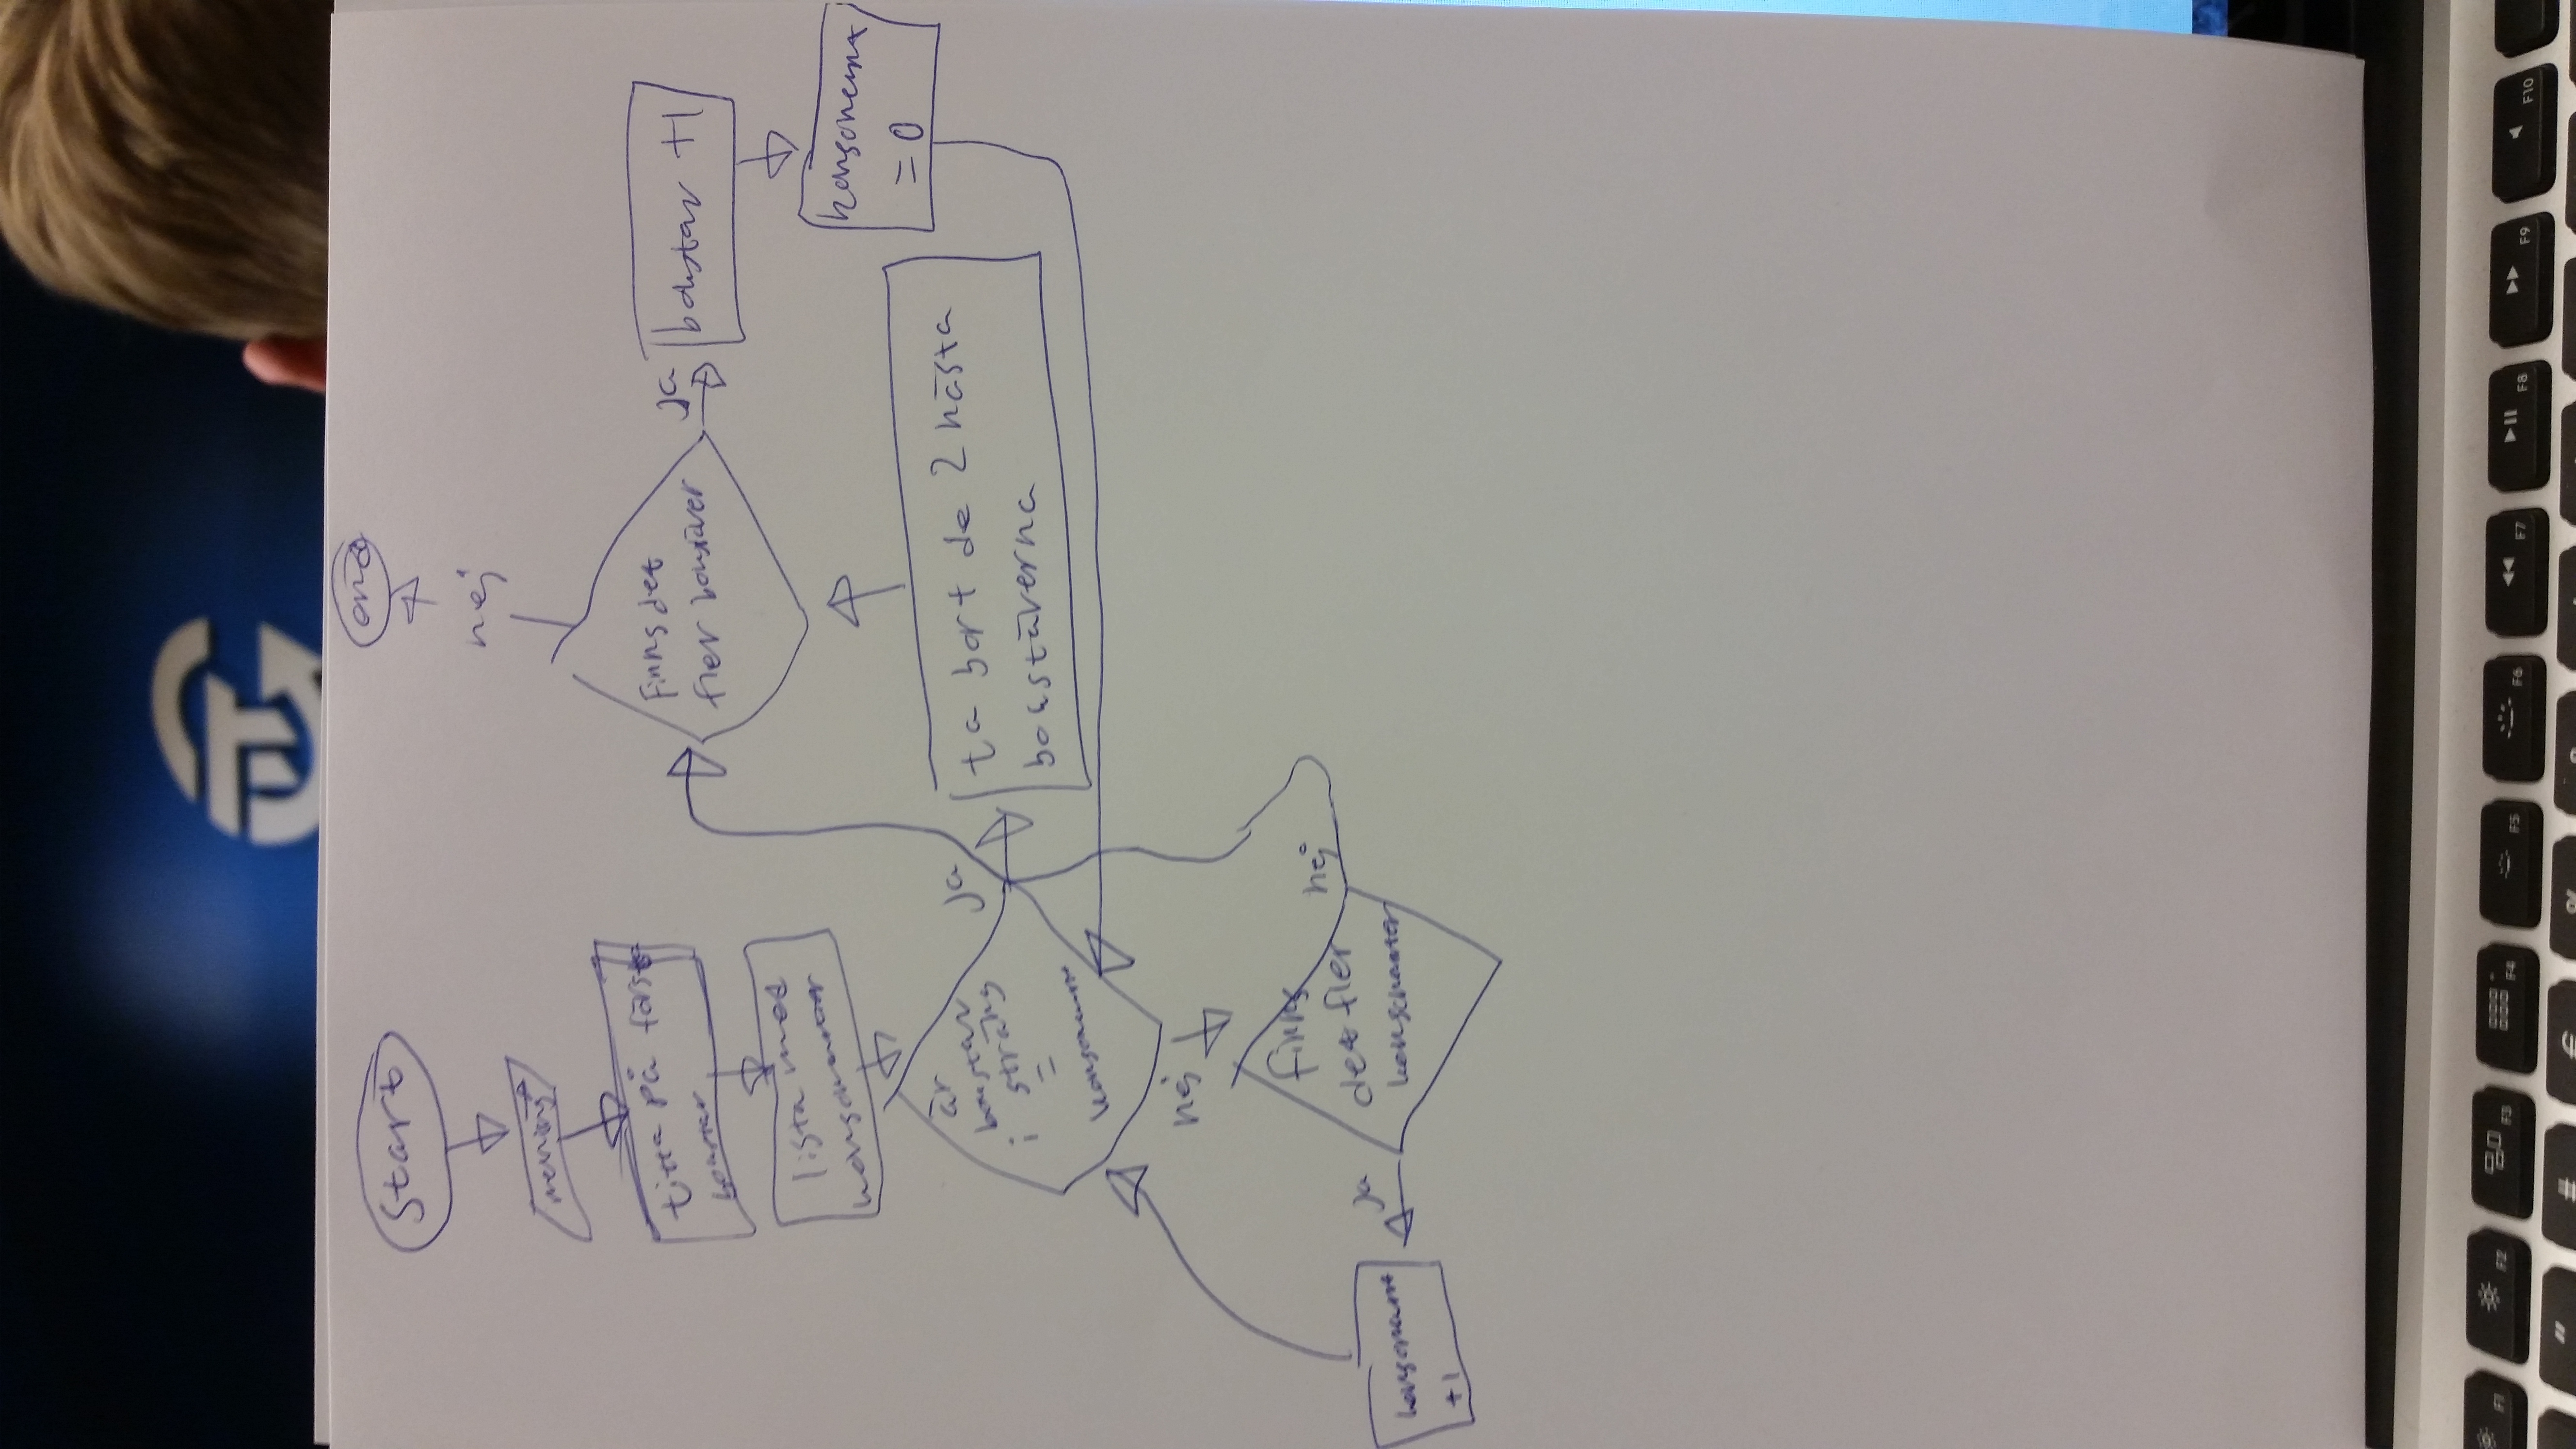 Start
mening
titta på första
bokstav
lista med
konsonanter
är
bokstav
i sträng
=
konsonant
nej
finns
det fler
konsonanter
ja
konsonant
+1
nej
ja
ta bort de 2 nästa
bokstäverna
Finns det
fler bokstäver
nej
end
ja
bokstav +1
konsonant
= 0
F1
F2
F3
F4
F5
F6
F7
F8
F9
F10
"
#
€
%